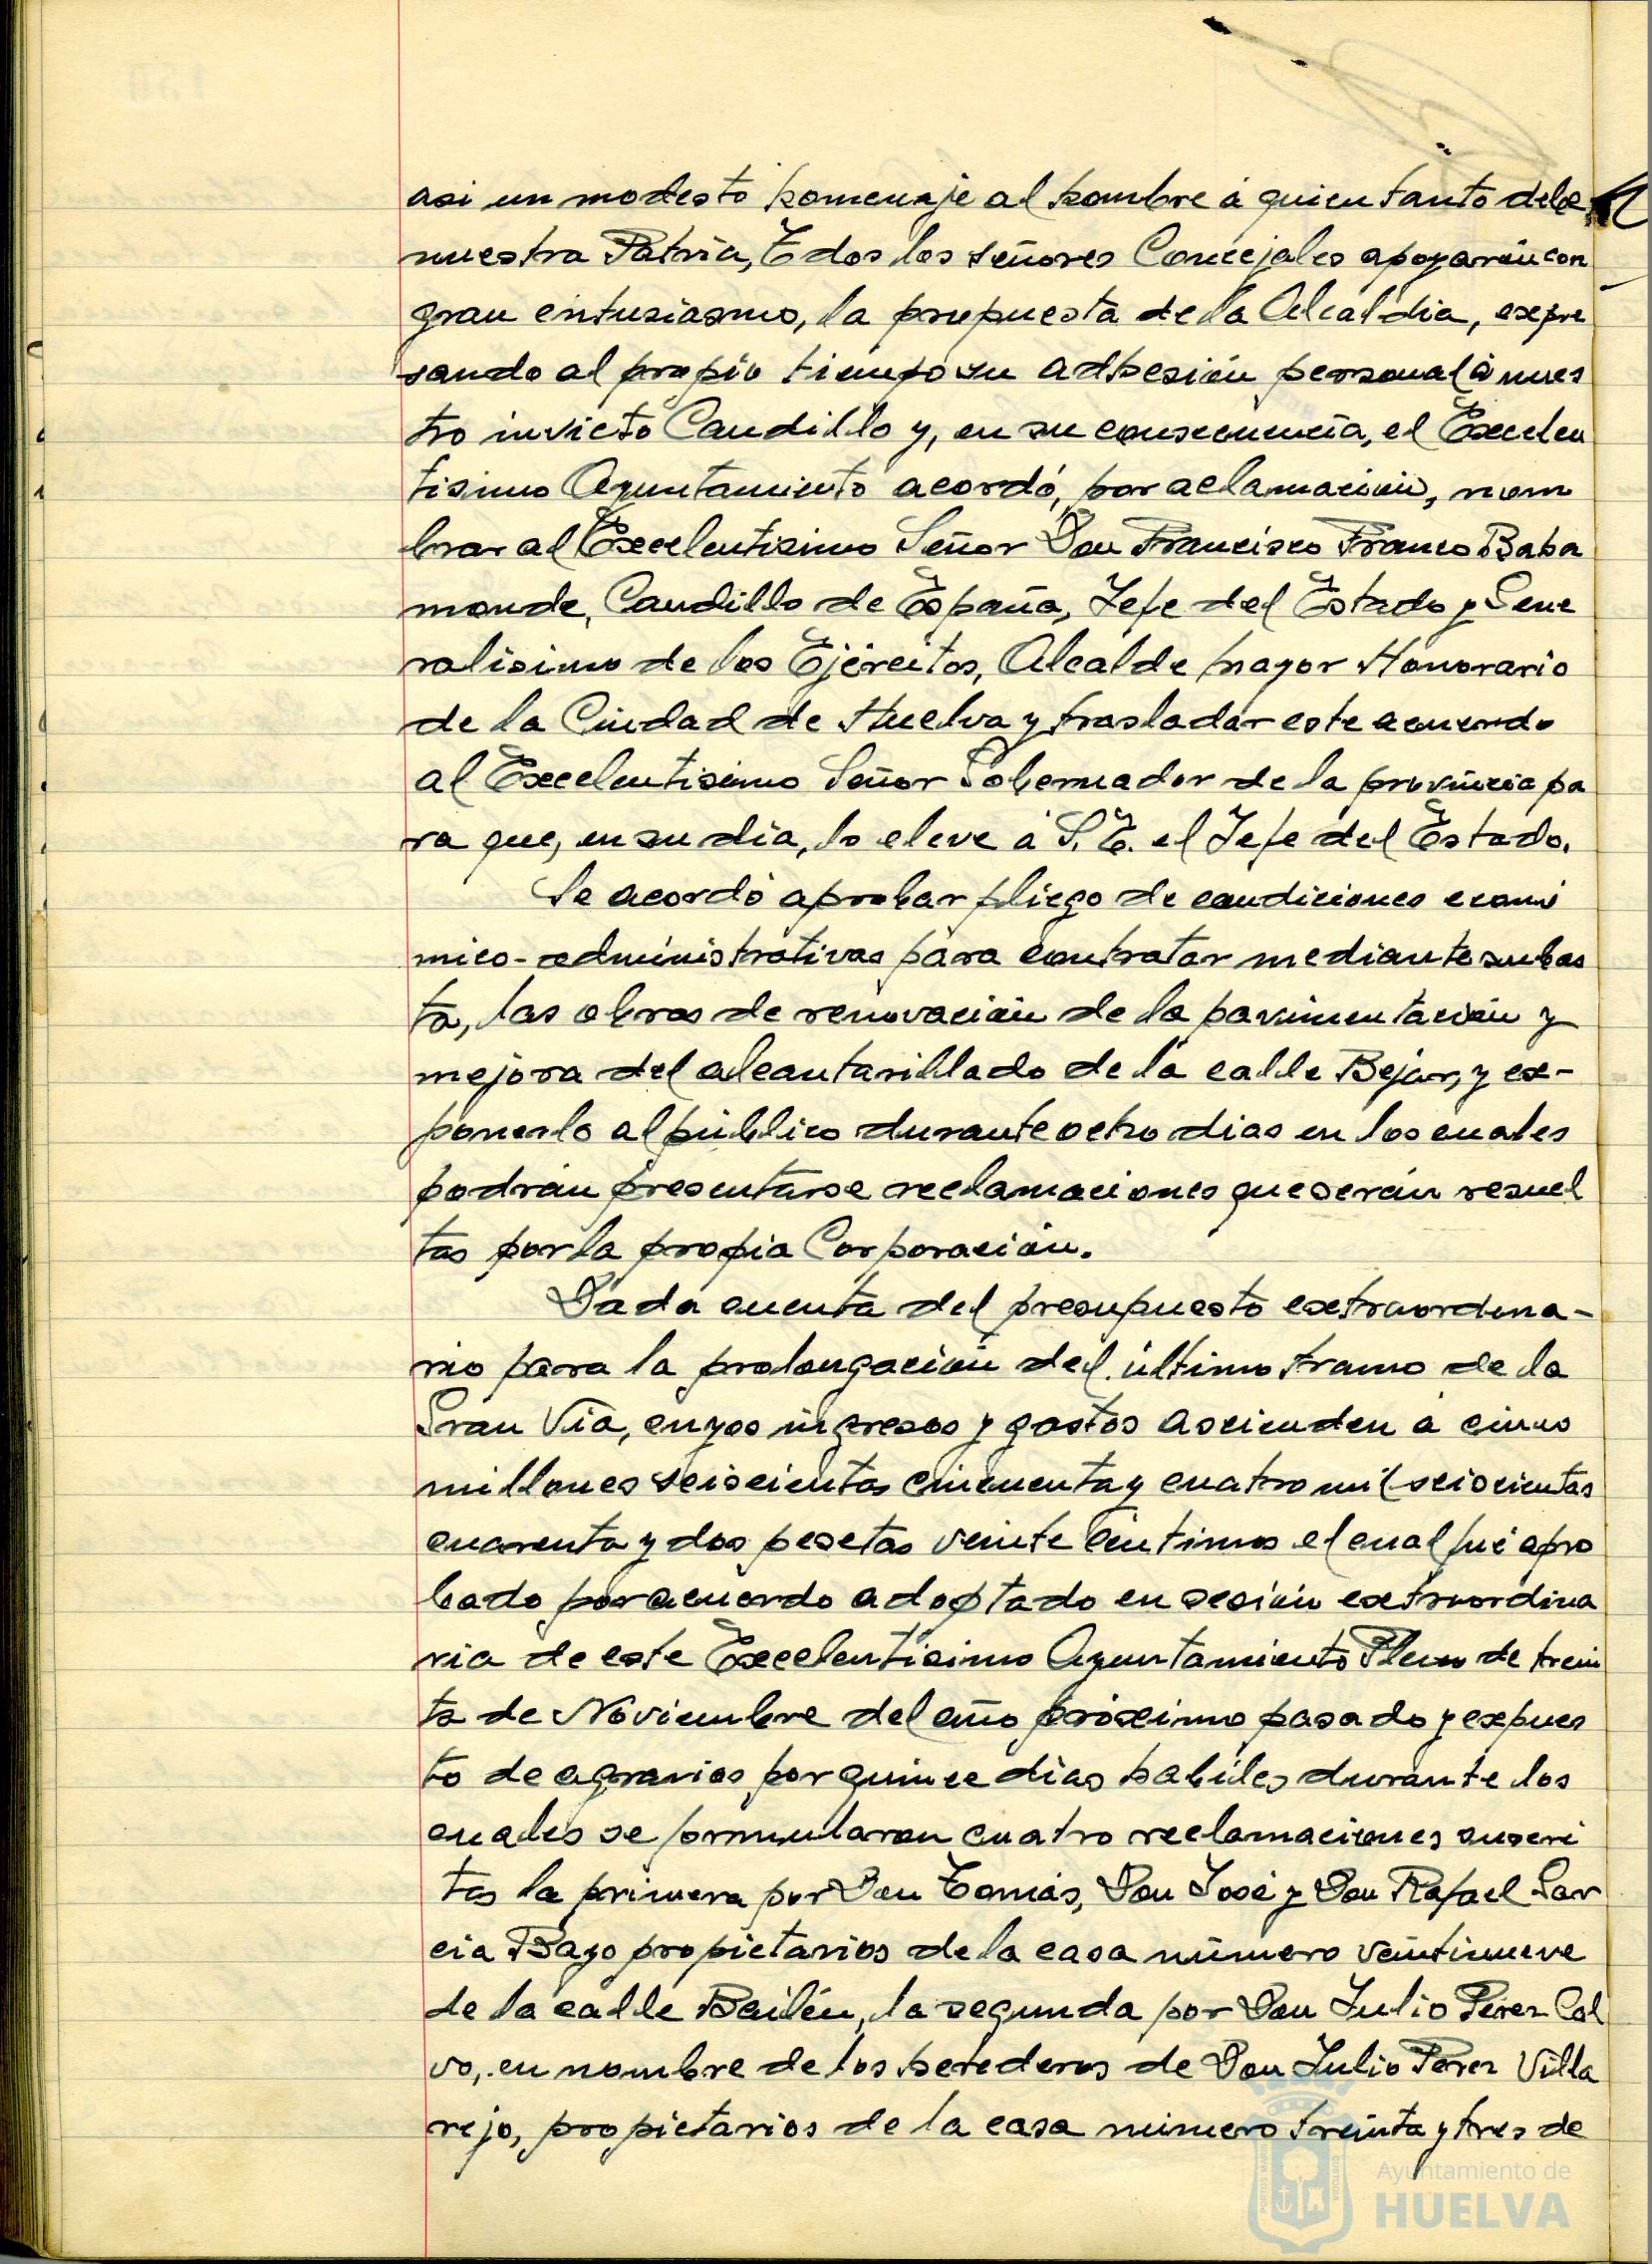 asi un modesto homenaje al hombre á quien tanto debe
nuestra Patria, Todos los señores Concejales apoyarón con
gran entusiasmo, la propuesta de la Alcaldia, expre
sando al propio tiempo su adhesión personal á nues
tro invicto Caudillo y, en su consecuencia, el Excelen
tisimo Ayuntamiento acordó, por aclamación, nom
brar al Excelentisimo Señor Don Francisco Franco Baha
monde, Caudillo de España, Jefe del Estado y Gene
ralisimo de los Ejércitos, Alcalde mayor Honorario
de la Ciudad de Huelva y trasladar este acuerdo
al Excelentisimo Señor Gobernador de la provincia pa
ra que, en su dia, lo eleve á S. E. el Jefe del Estado.
Se acordó aprobar pliego de condiciones económi
mico-administrativas para contratar mediante subas
ta, las obras de renovación de la pavimentación y
mejora del alcantarillado de la calle Bejar, y ex-
ponerlo al público durante ocho dias en los cuales
podrán presentarse reclamaciones que serán resuel
tas por la propia Corporación.
Dada cuenta del presupuesto extraordina-
rio para la prolongación del último tramo de la
Gran Via, cuyos ingresos y gastos ascienden á cinco
millones seiscientas cincuenta y cuatro mil seiscientas
cuarenta y dos pesetas veinte centimos el cual fué apro
bado por acuerdo adoptado en sesión extraordina
ria de este Excelentisimo Ayuntamiento Pleno de trein
ta de Noviembre del año próximo pasado y expues
to de agravios por quince dias habiles durante los
cuales se formularon cuatro reclamaciones suscri
tas la primera por Don Tomás, Don José y Don Rafael Gar
cia Bazo propietarios de la casa número veintinueve
de la calle Bailén, la segunda por Don Julio Pérez Cal
vo, en nombre de los herederos de Don Julio Perez Villa
rejo, propietarios de la casa número treinta y tres de
Ayuntamiento de
HUELVA